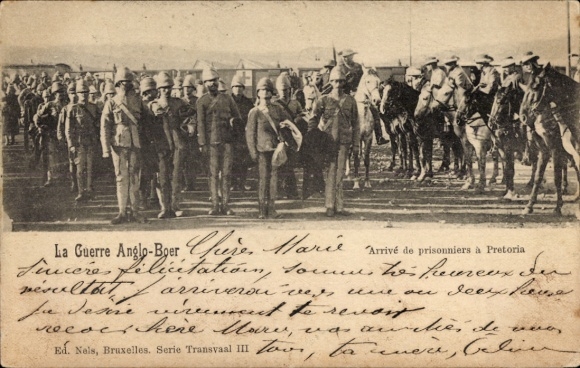 La Guerre Anglo-Boer Chères Marie Arrivé de prisonniers à Pretoria
Sincères félicitations, sommes très heureux du
résultat, j'arriverai vers une ou deux heures
je désire vivement te revoir
reçois chère Marie, nos amitiés de nous
Ed. Nels, Bruxelles. Serie Transvaal III tous, ta